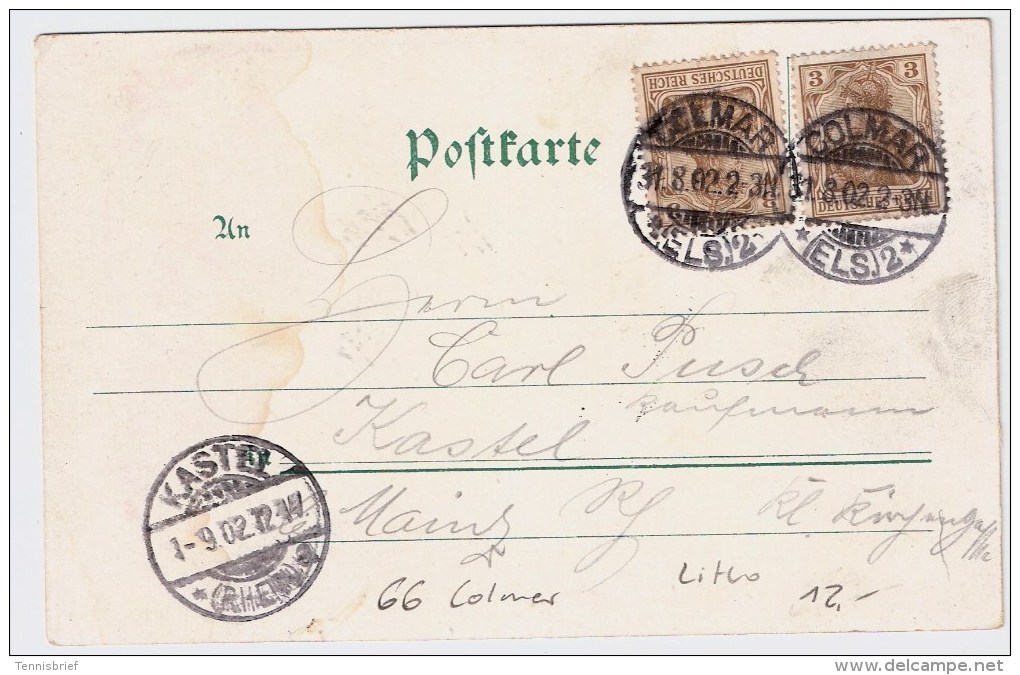 DEUTSCHES REICH
3
3 3
DEUTSCHES REICH
COLMAR
31.8.02.2-3N
* (ELS.) 2 *
COLMAR
31.8.02.2-3N
* (ELS.) 2 *
Postkarte
An
Herrn
Carl Pusch
Kaufmann
Kastel
in
Mainz
Kl. Kirchen
KASTEL
1-9.02.12-1N
* (RHEIN)
66 Colmer
Litho
12.-
Tennisbrief
delcampe.net